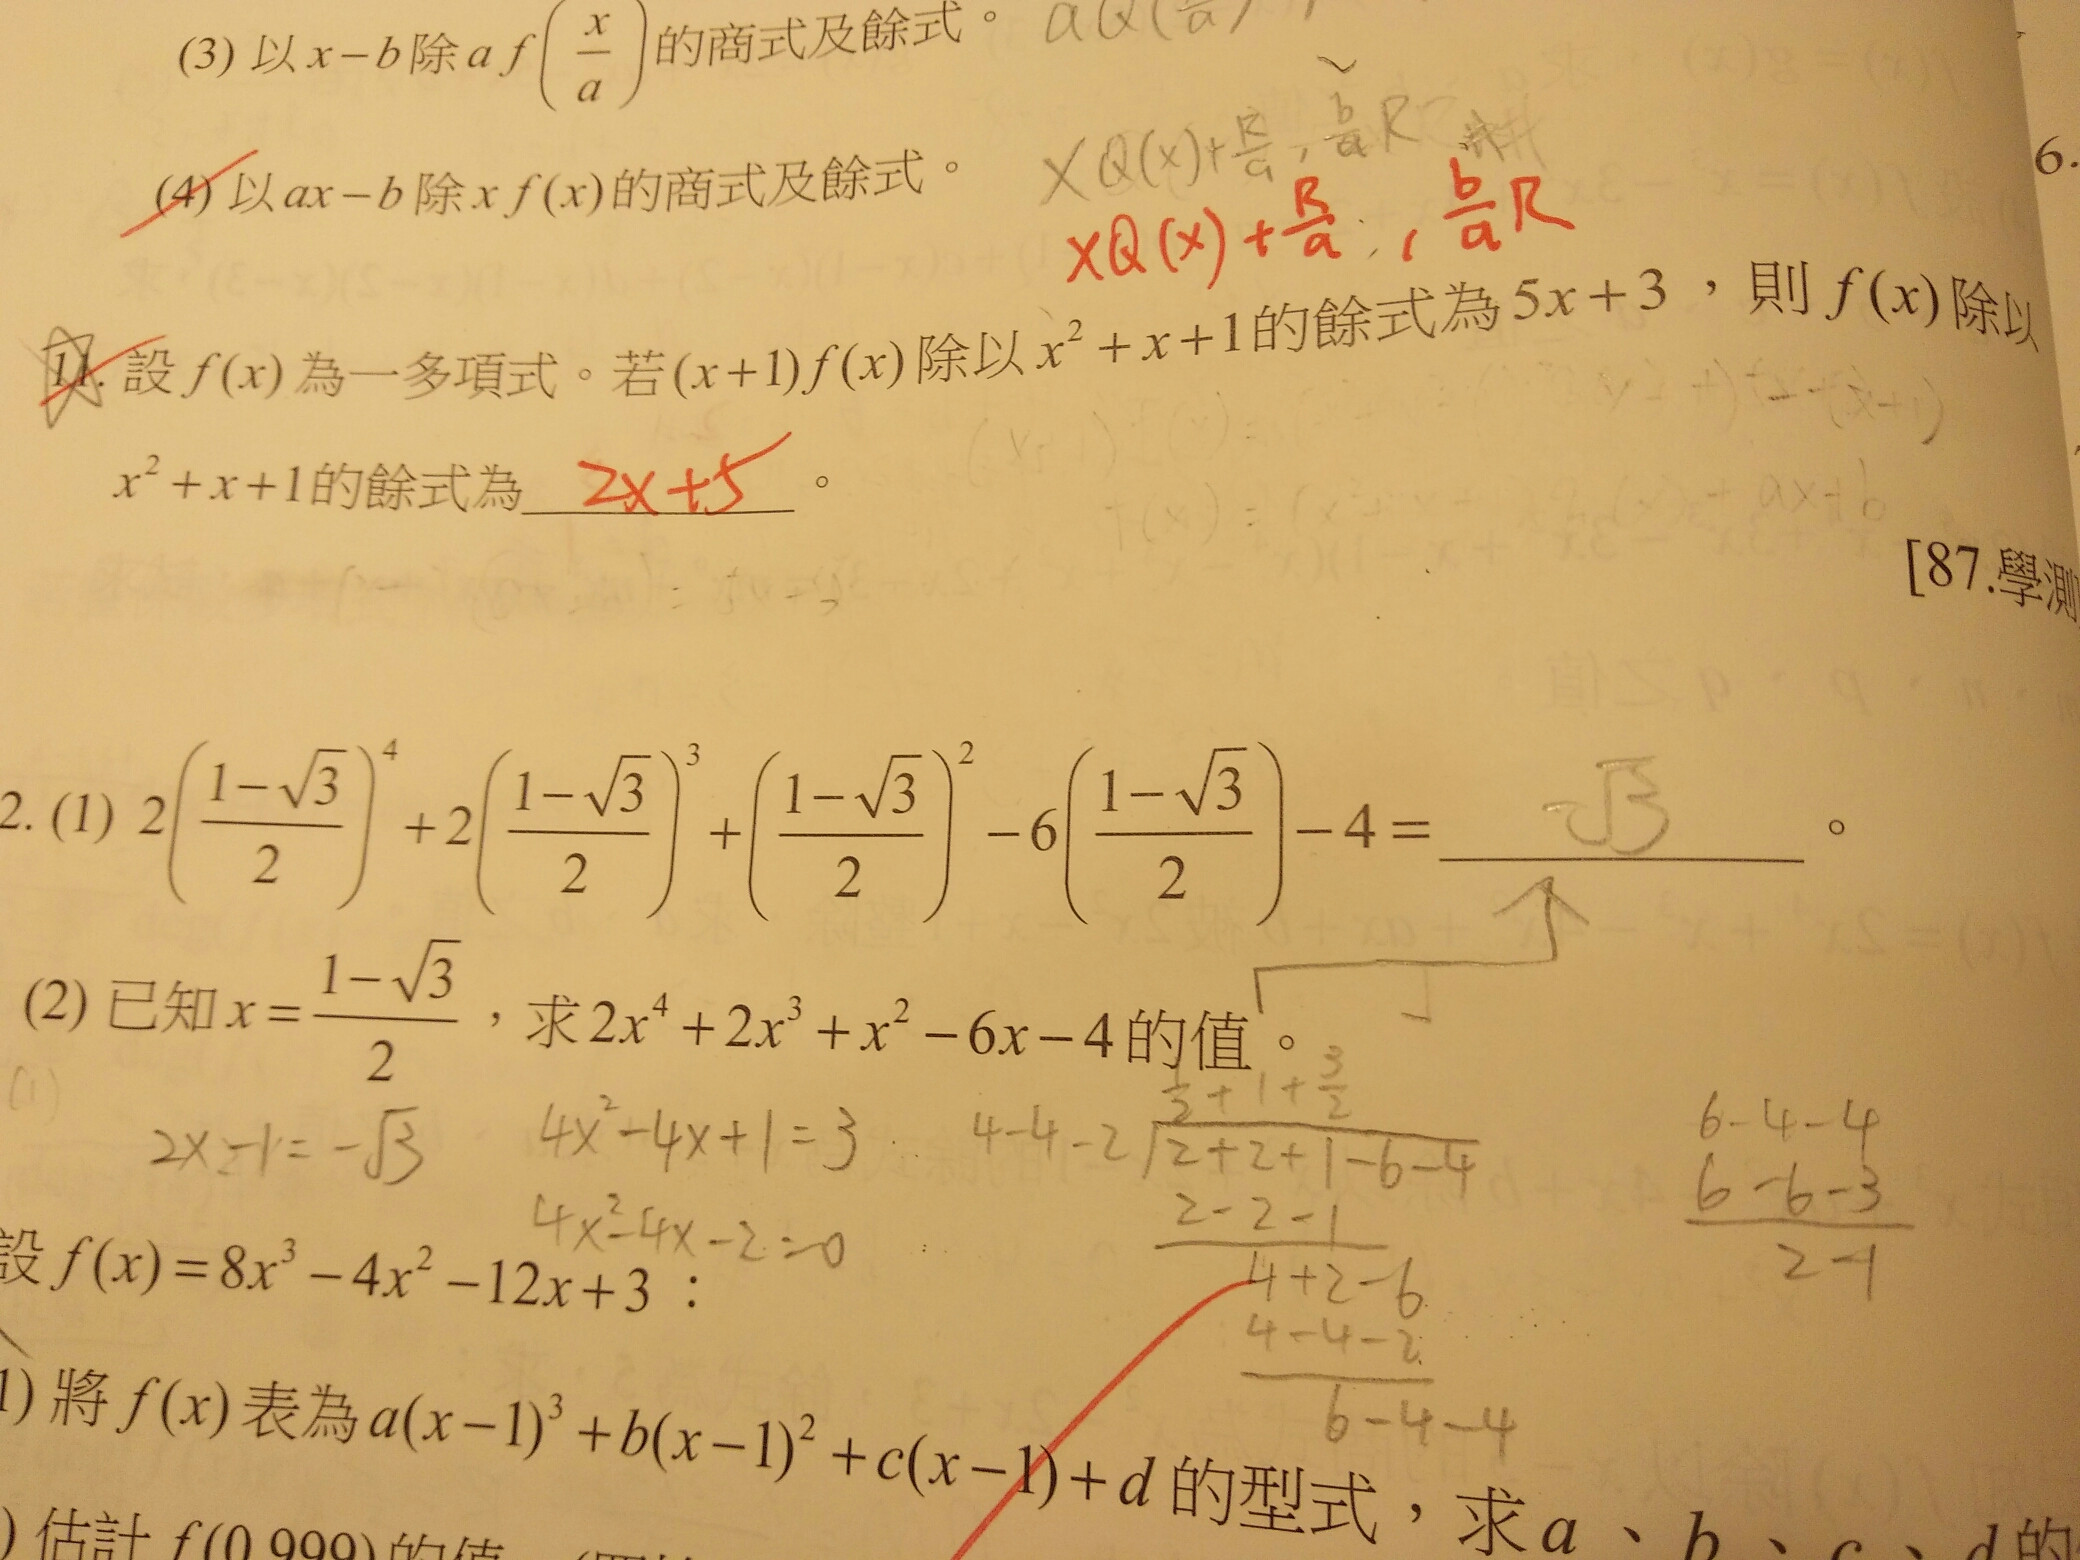 (3) 以 x－b 除 a f(x/a) 的商式及餘式。 aQ(
(4) 以 ax－b 除 x f(x) 的商式及餘式。 XQ(x)+R/a , b/a R
XQ(x)+R/a , b/a R
6.
11. 設 f(x) 為一多項式。若 (x+1)f(x) 除以 x²+x+1 的餘式為 5x+3，則 f(x) 除以
x²+x+1 的餘式為 2x+5 。
[87.學測
2. (1) 2((1－√3)/2)⁴+2((1－√3)/2)³+((1－√3)/2)²－6((1－√3)/2)－4= －√3 。
(2) 已知 x=(1－√3)/2，求 2x⁴+2x³+x²－6x－4 的值。
1/2+1+3/2
2x－1=－√3 4x²－4x+1=3 4－4－2 2+2+1－6－4 6－4－4
2－2－1 6－6－3
4x²－4x－2=0 2－1
設 f(x)=8x³－4x²－12x+3：
4+2－6
4－4－2
6－4－4
1) 將 f(x) 表為 a(x－1)³+b(x－1)²+c(x－1)+d 的型式，求 a、b、c、d 的
) 估計 f(0.999) 的值